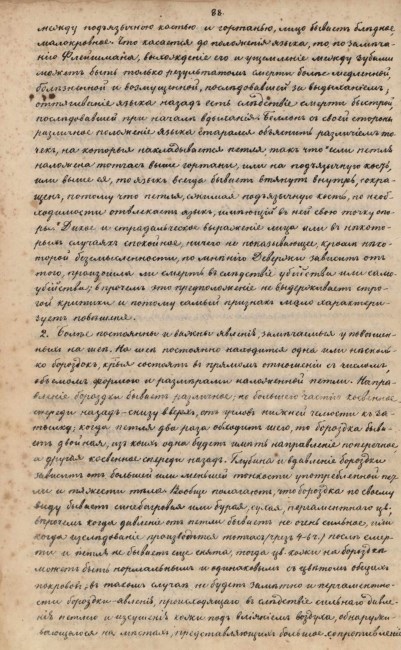 88.
между подъязычною костью и гортанью, лицо бываетъ блѣдное
малокровное. Что касается до положенія языка, то по замѣча-
нію Флейшмана, выхожденіе его и ущемленіе между зубами
можетъ быть только результатомъ смерти болѣе медленной,
болѣзненной и возмущенной, послѣдовавшей за выдыханіемъ;
оттягиваніе языка назадъ есть слѣдствіе смерти быстрой,
послѣдовавшей при началѣ вдыханія. Беллокъ съ своей стороны
различное положеніе языка старался объяснить различіемъ то
чекъ, на которыя накладывается петля такъ что если петля
наложена тотчасъ выше гортани, или на подъязычную кость,
или выше ея, то языкъ всегда бываетъ втянутъ внутрь, сокра-
щенъ, потому что петля, сжимая подъязычную кость, по необ-
ходимости отвлекаетъ языкъ, имѣющій въ ней свою точку опо-
ры. Дикое и страдальческое выраженіе лица или въ нѣкото-
рыхъ случаяхъ спокойное, ничего не показывающее, кромѣ нѣко-
торой безсмысленности, по мнѣнію Девержи зависитъ отъ
того, произошла ли смерть въ слѣдствіе убійства или само-
убійства; впрочемъ это предположеніе не выдерживаетъ стро-
гой критики и потому самый признакъ мало характери-
зуетъ повѣшеніе.
2. Болѣе постоянны и важны явленія, замѣчаемыя у повѣшен-
ныхъ на шеѣ. На шеѣ постоянно находится одна или нѣсколь-
ко бороздокъ, кои состоятъ въ прямомъ отношеніи съ числомъ,
объемомъ формою и размѣрами наложенной петли. Напра-
вленіе бороздки бываетъ различное; по большей части косвенное
спереди назадъ снизу вверхъ, отъ угловъ нижней челюсти къ за-
тылку; когда петля два раза обходитъ шею, то бороздка быва-
етъ двойная, изъ коихъ одна будетъ имѣть направленіе поперечное
а другая косвенное спереди назадъ. Глубина и вдавленіе бороздки
зависитъ отъ большей или меньшей тонкости употребленной пет-
ли и тяжести тѣла. Вообще полагаютъ, что бороздка по своему
виду бываетъ синебагровая или бурая, сухая, пергаментнаго цв.
впрочемъ когда давленіе отъ петли бываетъ не очень сильное, или
когда изслѣдованіе производится тотчасъ, чрезъ 4-6 ч., послѣ смер-
ти и петля не бываетъ еще снята, тогда цв. кожи на бороздкѣ
можетъ быть нормальнымъ и одинаковымъ съ цвѣтомъ общихъ
покрововъ; въ такомъ случаѣ не будетъ замѣтно и пергаментно-
сти бороздки-явленія, происходящаго въ слѣдствіе сильнаго давле-
нія петлею и изсушенія кожи подъ вліяніемъ воздуха, обнаружи-
вающагося на мѣстахъ, представляющихъ большое сопротивленіе